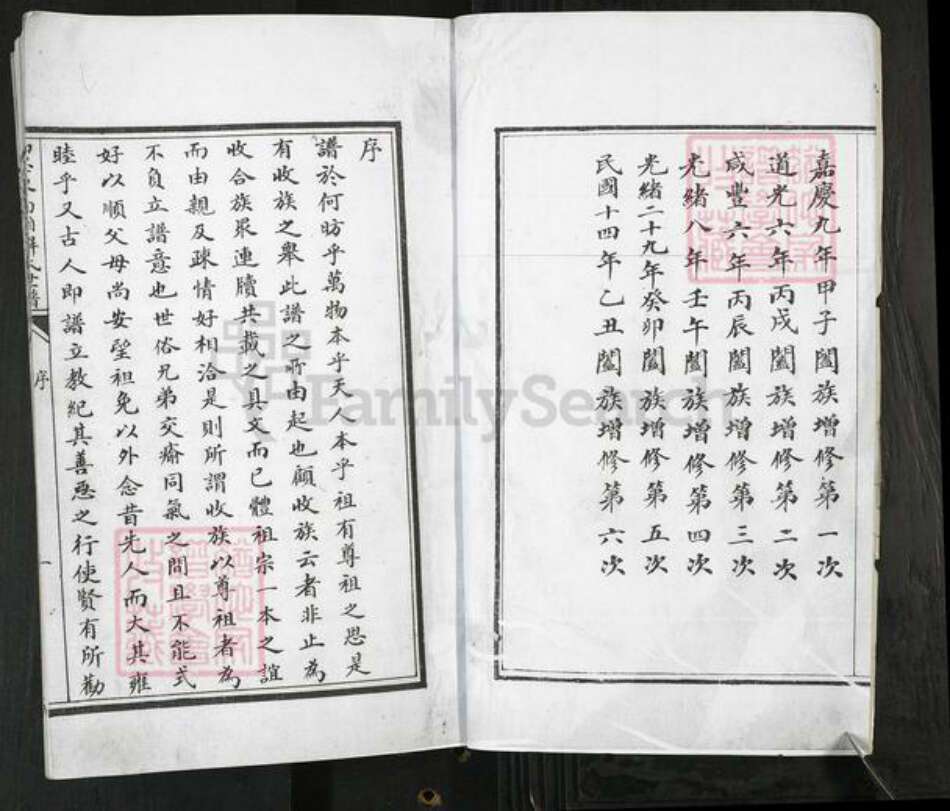 嘉慶九年甲子闔族增修第一次
道光六年丙戌闔族增修第二次
咸豐六年丙辰闔族增修第三次
光緒八年壬午闔族增修第四次
光緒二十九年癸卯闔族增修第五次
民國十四年乙丑闔族增修第六次
序
譜於何昉乎萬物本乎天人本乎祖有尊祖之思是
有收族之舉此譜之所由起也顧收族云者非止為
收合族眾連牘共載之具文而已體祖宗一本之誼
而由親及疎情好相洽是則所謂收族以尊祖者為
不負立譜意也世俗兄弟交瘉同氣之間且不能式
好以順父母尚安望祖免以外念昔先人而大其雍
睦乎又古人即譜立教紀其善惡之行使賢有所勸
序
一
FamilySearch